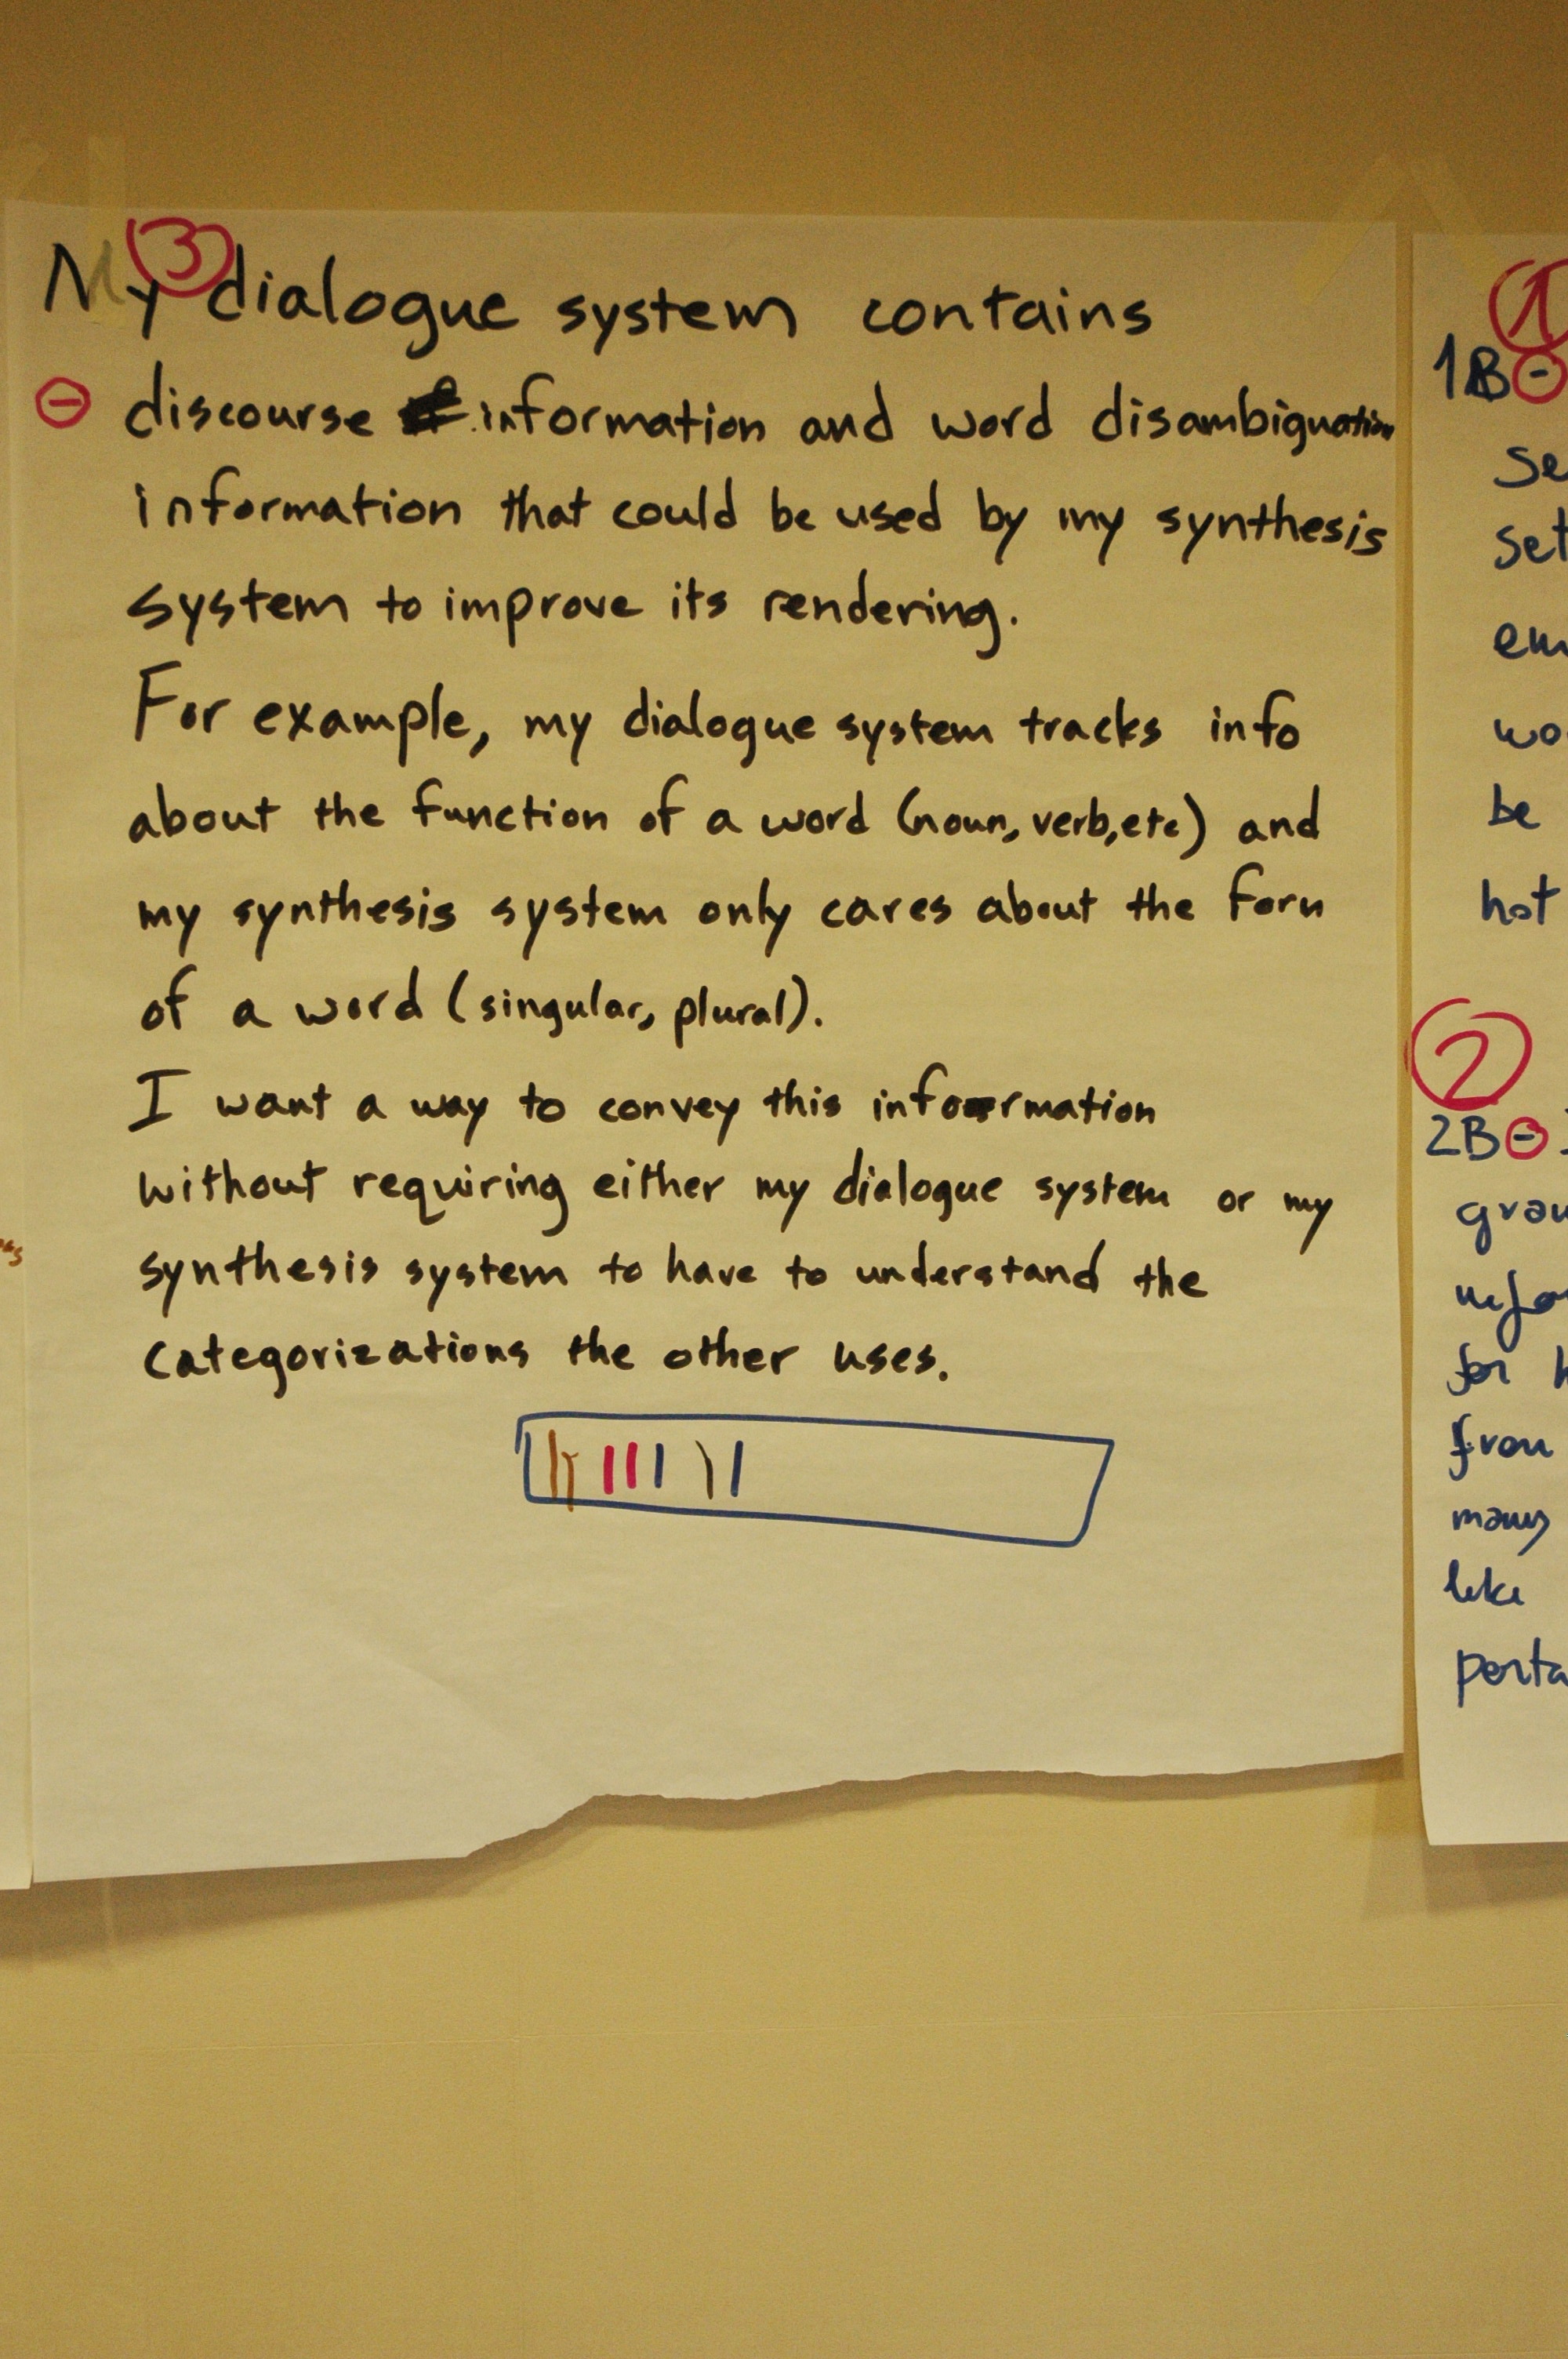 3
My dialogue system contains
discourse information and word disambiguation
information that could be used by my synthesis
system to improve its rendering.
For example, my dialogue system tracks info
about the function of a word (noun, verb, etc) and
my synthesis system only cares about the form
of a word (singular, plural).
I want a way to convey this information
without requiring either my dialogue system or my
synthesis system to have to understand the
categorizations the other uses.
1
1B -
se
set
em
wo
be
hot
2
2B -
grou
for
from
many
like
porta